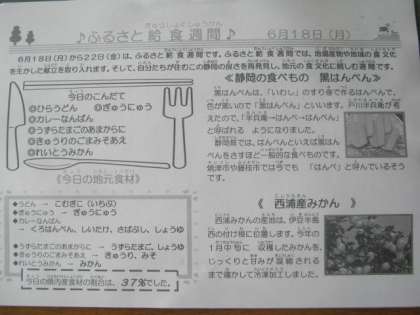 ♪ふるさと給食週間♪ 6月18日(月)
6月18日(月)から22日(金)は、ふるさと給食週間です。ふるさと給食週間では、地場産物や地域の食文化
を生かした献立を取り入れます。そして、自分たちが住むこの静岡の良さを再発見し、地元の食文化に親しむ週間です。
今日のこんだて
◎ひらうどん ◎ぎゅうにゅう
◎カレーなんばん
◎うずらたまごのあまからに
◎きゅうりのごまみそあえ
◎れいとうみかん
《今日の地元食材》
●うどん → こむぎこ(いちぶ)
●ぎゅうにゅう → ぎゅうにゅう
●カレーなんばん
→ くろはんぺん、しいたけ、さばぶし、しょうゆ
●うずらたまごのあまからに → うずらたまご、しょうゆ
●きゅうりのごまみそあえ → きゅうり、みそ
●れいとうみかん → みかん
今日の県内産食材の割合は、37%でした。
《静岡の食べもの 黒はんぺん》
黒はんぺんは、「いわし」のすり身で作るはんぺんで、
色が黒いので「黒はんぺん」といいます。戸川半兵衛が考
えたので、「半兵衛→はんべ→はんぺん」
と呼ばれる ようになりました。
静岡県では、はんぺんといえば黒はん
ぺんをさすほど一般的な食べものです。
焼津市や藤枝市では今でも 「はんべ」と呼んでいるそう
です。
《 西浦産みかん 》
西浦みかんの産地は、伊豆半島
西の付け根に位置します。今年の
1月中旬に 収穫したみかんを、
じっくりと甘みが凝縮される
まで寝かして冷凍加工しました。